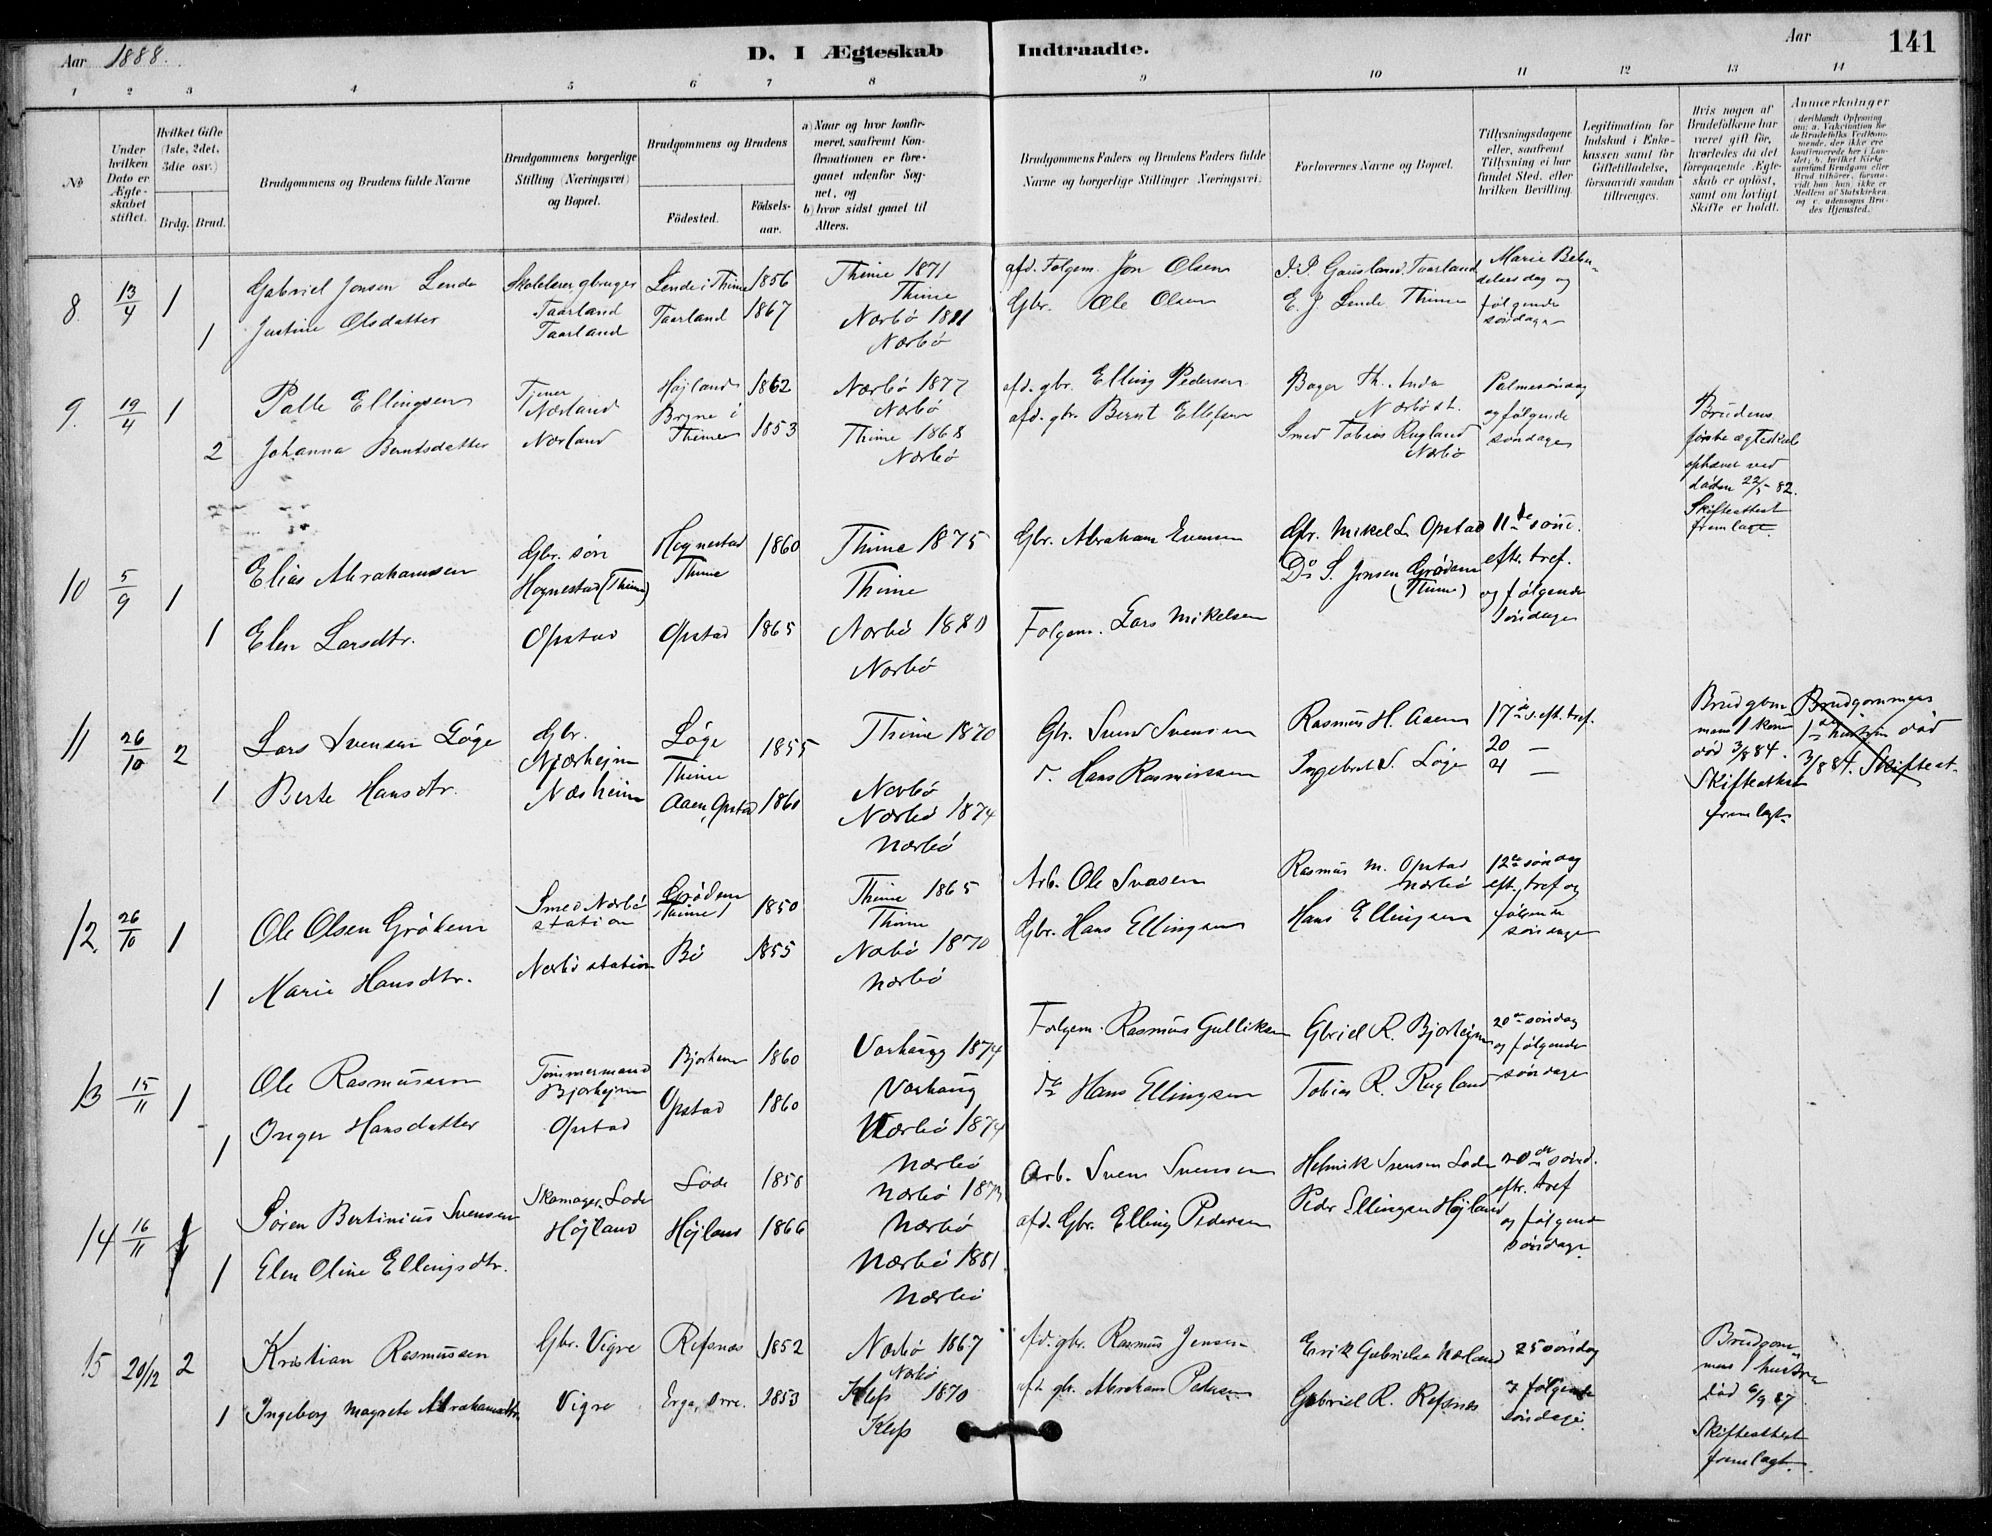 Aar 1888.
D. I Ægteskab Indtraadte.
Aar 141
1 2 3 4 5 6 7 8 9 10 11 12 13 14
No
Under hvilken Dato er Ægteskabet stiftet.
Hvilket Gifte (1ste, 2det, 3die osv.)
Brdg. Brud.
Brudgommens og Brudens fulde Navne
Brudgommens borgerlige Stilling (Næringsvei) og Bopæl.
Brudgommens og Brudens
Födested.
Födsels-aar.
a) Naar og hvor konfirmeret, saafremt Konfirmationen er foregaaet udenfor Sognet, og
b) hvor sidst gaaet til Alters.
Brudgommens Faders og Brudens Faders fulde Navne og borgerlige Stillinger (Næringsvei).
Forlovernes Navne og Bopæl.
Tillysningsdagene eller, saafremt Tillysning ei har fundet Sted, efter hvilken Bevilling.
Legitimation for Indskud i Enkekassen samt for Giftetilladelse, forsaavidt saadan tiltrænges.
Hvis nogen af Brudefolkene har været gift för, hvorledes da det foregaaende Ægteskab er oplöst, samt om lovligt Skifte er holdt.
Anmærkninger
8. 13/4 1 Gabriel Jonsen Lende Skolelærer gbruger Taarland Lende i Thime 1856 Thime 1871 Thime afd. Folgem. Jon Olsen J. P. Gausland, Taarland Marie Bebudelsesdag og
1 Justine Olsdatter Taarland Taarland 1867 Nærbö 1881 Nærbö Gbr. Ole Olsen E. J. Lende Thime følgende søndage
9. 19/4 1 Palle Ellingsen Tjener Nærland Højland 1862 Nærbö 1877 Nærbö afd. gbr. Elling Pedersen Bager Th. Nærbö st. Palmesøndag
2 Johanna Berntsdatter Nærland Bryne i Thime 1853 Thime 1868 Nærbö afd. gbr. Bernt Ellefsen Smed Tobias Rugland Nærbö og følgende søndage Brudens første ægteskab ophævet ved døden 22/5-82. Skifteattest fremlagt
10 5/9 1 Elias Abrahamsen Gbr. søn Hognestad (Thime) Hognestad Thime 1860 Thime 1875 Thime Gbr. Abraham Evensen Gbr. Mikel L. Opstad 11te sønd.
1 Elen Larsdtr. Opstad Opstad 1865 Nærbö 1880 Nærbö Folgem. Lars Mikelsen Do S. Jonsen Grødem (Thime) eft. tref. og følgende søndage
11 26/10 2 Lars Svensen Løge Gbr. Njærhejm Løge Thime 1855 Thime 1870 Nærbö Gbr. Svend Svensen Rasmus H. Aaen 17de s. eft. tref.
1 Berte Hansdtr. Næsheim Aaen, Opstad 1860 Nærbö 1874 Nærbö do. Hans Rasmussen Ingebret S. Løge 20 — 21 —
Brudgommens 1 kone død 3/8 84. Skifteattest fremlagt.
Brudgommens 1ste hustru død 3/8 84. Skifteat.
12. 26/10 1 Ole Olsen Grødem Smed Nærbö station Grødem Thime 1850 Thime 1865 Thime Arb. Ole Svasen Rasmus M. Opstad Nærbö 12te søndag
1 Marie Hansdtr. Nærbö station Bö 1855 Nærbö 1870 Nærbö Gbr. Hans Ellingsen Hans Ellingsen eft. tref og følgende søndage
13 15/11 1 Ole Rasmussen Tømmermand Bjorhejm Bjorhem 1860 Varhaug 1874 Varhaug Folgem. Rasmus Gulliksen Gbriel R. Bjorhejm 20de søndag
1 Inger Hansdatter Opstad Opstad 1860 Nærbö 1874 Nærbö do Hans Ellingsen Tobias R. Rugland og følgende søndage
14 16/11 1 Søren Bertinius Svensen Skomager, Lode Lode 1858 Nærbö 1873 Nærbö Arb. Svens Svensen Helmik Svensen Lode 20de sønd.
1 Elen Oline Ellingsdtr. Højland Højland 1866 Nærbö 1881 Nærbö afd. Gbr. Elling Pedersen Peder Ellingsen Højland eftr. tref og følgende søndage
15 20/12 2 Kristian Rasmussen Gbr. Vigre Refsnæs 1852 Nærbö 1867 Nærbö afd. gbr. Rasmus Jensen Erik Gabrielsen Næland 25 søndag
1 Ingeborg Magrete Abrahamsdtr. Vigre Erga, Orre. 1853 Klep 1870 Klep afd. gbr. Abraham Pedersen Gabriel R. Refsnæs og følgende søndage.
Brudgommens 1 hustru død 6/9 87. Skifteattest fremlagt.